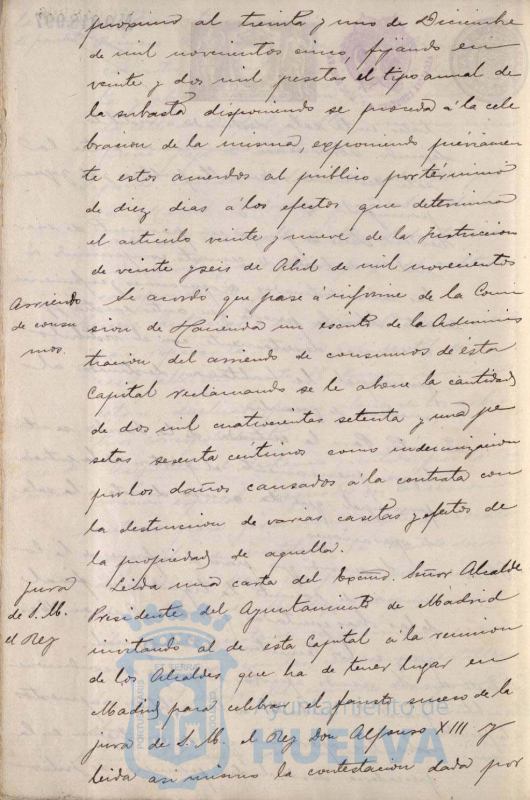 proximo al treinta y uno de Diciembre
de mil novecientos cinco, fijando en
veinte y dos mil pesetas el tipo anual de
la subasta disponiendo se proceda á la cele
bracion de la misma, exponiendo préviamen
te estos acuerdos al público por término
de diez dias á los efectos que determina
el artículo veinte y nueve de la Instruccion
de veinte y seis de Abril de mil novecientos
Arriendo
de consu
mos.
Se acordó que pase á informe de la Comi
sion de Hacienda un escrito de la Adminis
tracion del arriendo de consumos de ésta
Capital reclamando se le abone la cantidad
de dos mil cuatrocientas setenta y una pe
setas sesenta centimos como indemnizacion
por los daños causados á la contrata con
la destruccion de varias casitas y efectos de
la propiedad de aquella.
Jura
de S. M.
el Rey
Leida una carta del Excmo. Señor Alcalde
Presidente del Ayuntamiento de Madrid
invitando al de esta Capital á la reunion
de los Alcaldes que ha de tener lugar en
Madrid para celebrar el fausto suceso de la
jura de S. M. el Rey Don Alfonso XIII y
leida asi mismo la contestacion dada por
Ayuntamiento de
HUELVA